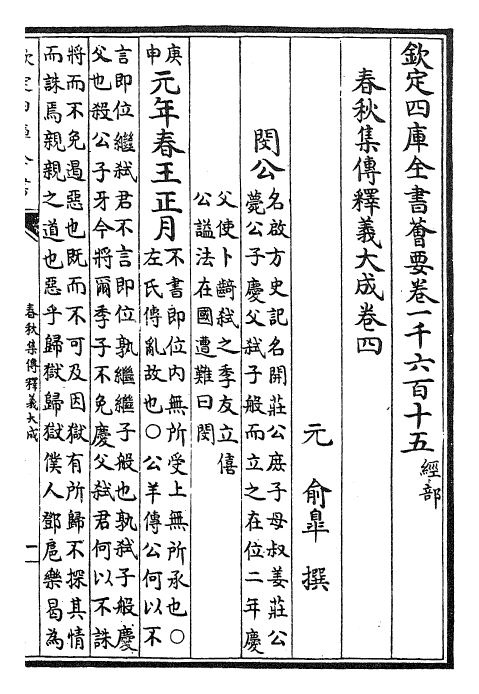 欽定四庫全書薈要卷一千六百十五 經部
春秋集傳釋義大成卷四
元 俞皐 撰
閔公
名啟方史記名開莊公庶子母叔姜莊公
薨公子慶父弑子般而立之在位二年慶
父使卜齮弑之季友立僖
公謚法在國遭難曰閔
庚申
元年春王正月
不書即位内無所受上無所承也○
左氏傳亂故也○公羊傳公何以不
言即位繼弑君不言即位孰繼繼子般也孰弑子般慶
父也殺公子牙今將爾季子不免慶父弑君何以不誅
將而不免遏惡也既而不可及因獄有所歸不探其情
而誅焉親親之道也惡乎歸獄歸獄僕人鄧扈樂曷為
欽定四庫全書
春秋集傳釋義大成
一